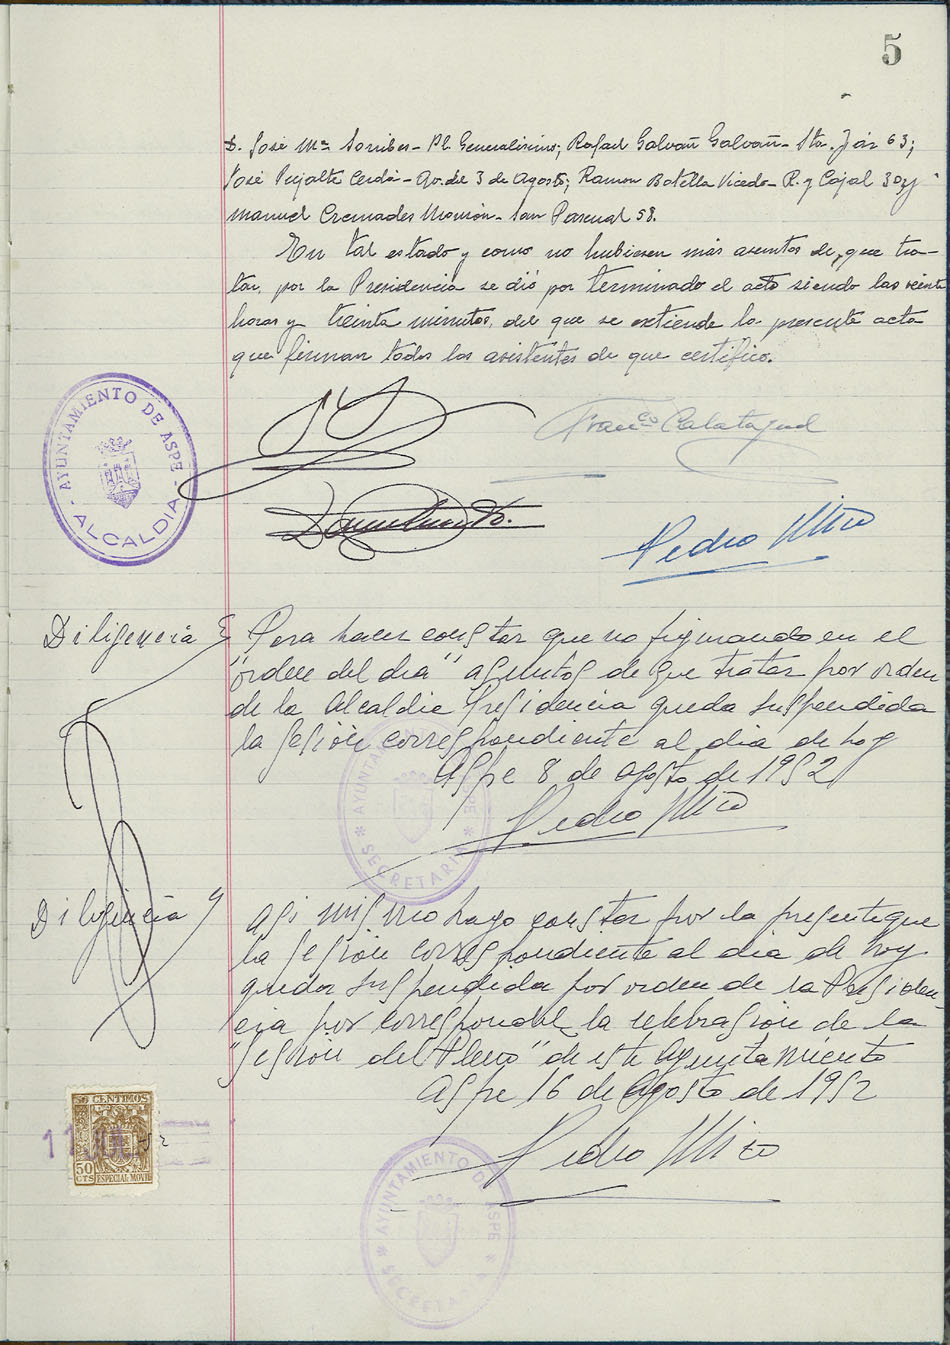 5
D. José Mª Sorribes - Pl. Generalísimo; Rafael Galvañ Galvañ - Sta. Faz 63;
José Pujalte Cerdá - Av. del 3 de Agosto; Ramon Botella Vicedo - R. y Cajal 30 y
Manuel Cremades Monzón - San Pascual 58.
En tal estado y como no hubiesen más asuntos de que tra-
tar, por la Presidencia se dió por terminado el acto siendo las veinte
horas y treinta minutos, del que se extiende la presente acta
que firman todos los asistentes de que certifico.
AYUNTAMIENTO DE ASPE
ALCALDIA
Franco Calatayud
Pedro Mico
Diligencia Para hacer constar que no figurando en el
"orden del dia" asuntos de que tratar por orden
de la Alcaldia Presidencia queda suspendida
la sesión correspondiente al dia de hoy
Aspe 8 de agosto de 1952
Pedro Mico
AYUNTAMIENTO DE ASPE
SECRETARIA
Diligencia Asi mismo hago constar por la presente que
la sesión correspondiente al dia de hoy
queda suspendida por orden de la Presiden-
cia por corresponder la celebrasion de la
"sesión del Pleno" de este Ayuntamiento
Aspe 16 de Agosto de 1952
50 CENTIMOS
50
CTS
ESPECIAL MOVIL
11 JUL
Pedro Mico
AYUNTAMIENTO DE ASPE
SECRETARIA